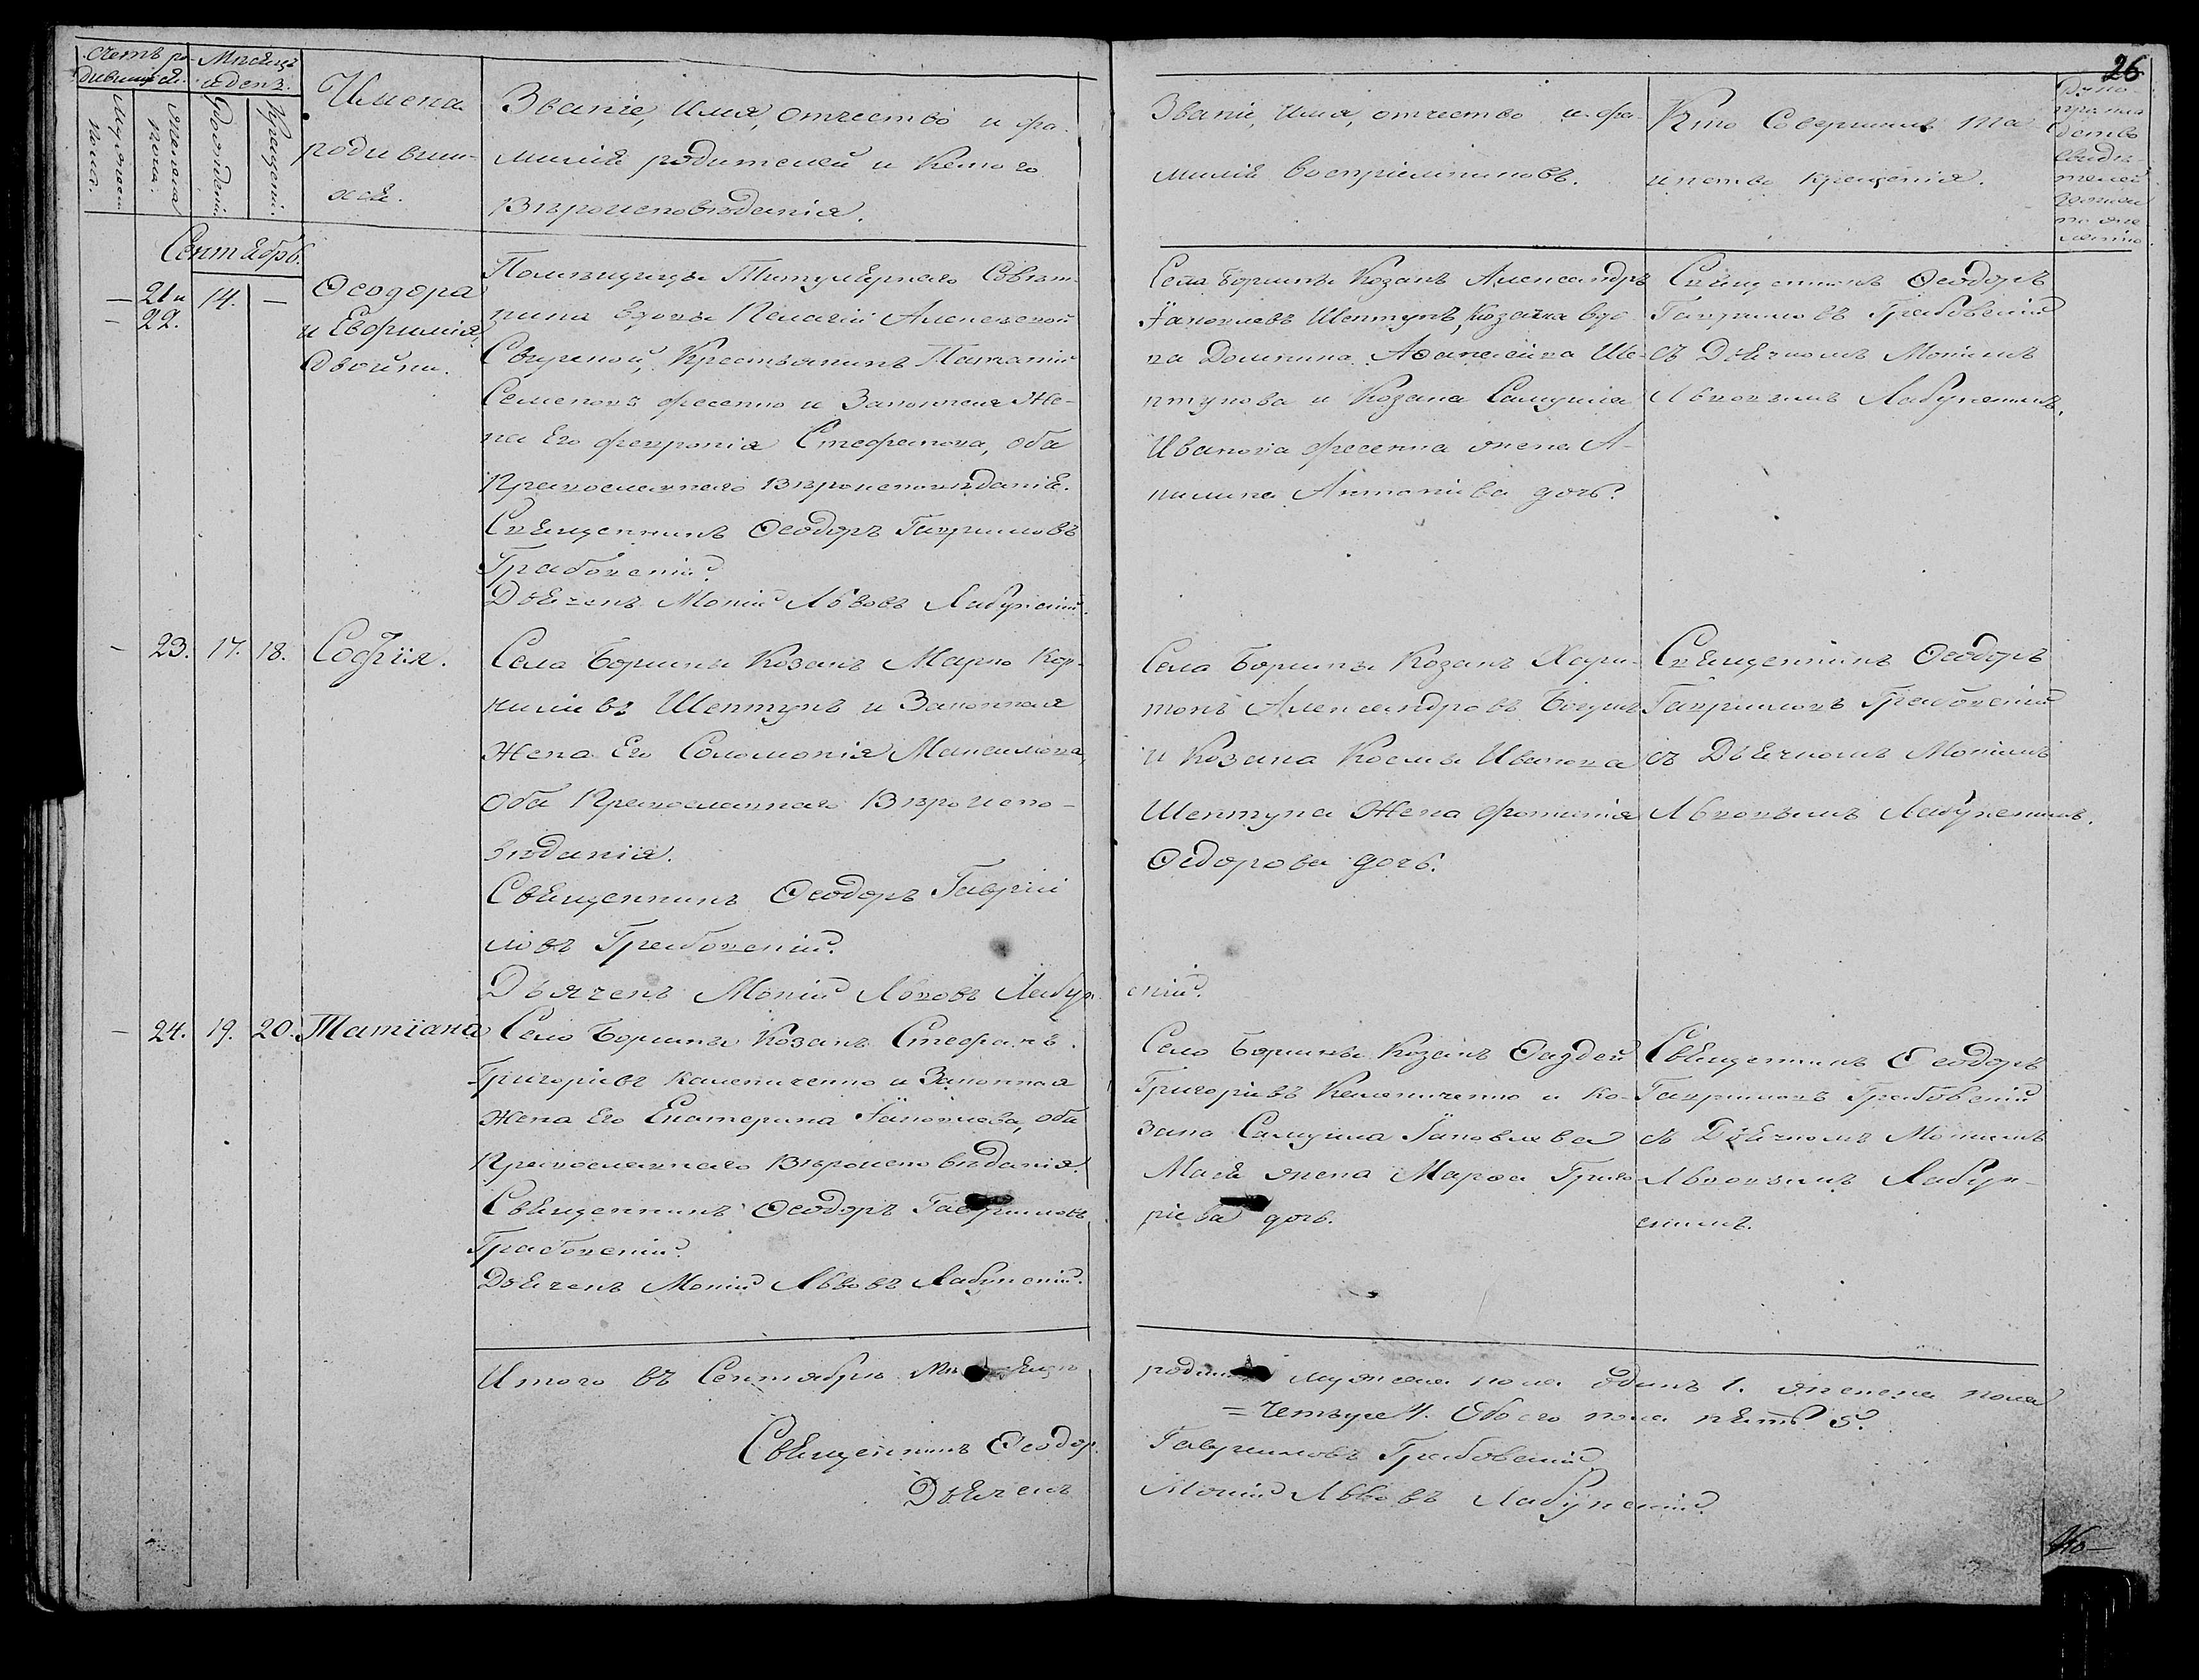 26
Счетъ ро-
дившихся.
Мѣсяцъ
и день.
Мужеска
пола.
Женска
пола.
Рожденія.
Крещенія.
Имена
родивши-
хся.
Званіе, имя, отчество и фа-
милія родителей и какого
вѣроисповѣданія.
Званіе, имя, отчество и фа-
милія воспріемниковъ.
Кто совершилъ таи-
инство крещенія.
Сентябрь.
— 21 и
— 22.
14. —
Ѳеодора
и Евфимія,
двойни.
Помѣщицы Титулярнаго Совѣт-
ника вдовы Пелагіи Алексеевой
крестьянинъ
Семеновъ Фесенко и Законная Же-
на Его Февронія Стефанова, оба
Православнаго Вѣроисповѣданія.
Священникъ Ѳеодоръ Гавриловъ
Грабовскій.
Дьячекъ Мокій Львовъ Лабунскій.
Села Козакъ Александръ
Яковлевъ Шептунъ, козачка вдо-
ва Домникія Аѳанасіева Ше-
птунова и Козака Самуила
Иванова Фесенка жена А-
килина Антоніева дочь.
Священникъ Ѳеодоръ
Гавриловъ Грабовскій
съ Дьячкомъ Мокіемъ
Львовымъ Лабунскимъ.
— 23. 17. 18. Софія.
Села Козакъ Марко Кор-
ниліевъ Шептунъ и Законная
Жена Его Соломонія Максимова,
оба Православнаго Вѣроиспо-
вѣданія.
Священникъ Ѳеодоръ Гавріи
ловъ Грабовскій.
Дьячекъ Мокій Львовъ Лабун
скій.
Села Козакъ Хари-
тонъ Александровъ
и Козака Космы Иванова
Шептуна Жена Фотинія
Ѳедорова дочь.
Священникъ Ѳеодоръ
Гавриловъ Грабовскій
съ Дьячкомъ Мокіемъ
Львовымъ Лабунскимъ.
— 24. 19. 20. Татіана
Села Козакъ Стефанъ
Григоріевъ Калениченко и Законная
Жена Его Екатерина Яковлева, оба
Православнаго Вѣроисповѣданія.
Священникъ Ѳеодоръ Гавриловъ
Грабовскій.
Дьячекъ Мокій Львовъ Лабунскій.
Села Козакъ Ѳаддей
Григоріевъ Калениченко и Ко-
зака Самуила Яковлева
жена Марѳа Григо-
ріева дочь.
Священникъ Ѳеодоръ
Гавриловъ Грабовскій
съ Дьячкомъ Мокіемъ
Львовымъ Лабун-
скимъ.
Итого въ Сентябрѣ Мѣсяцѣ
мужеска пола одинъ 1. женска пола
= четыре 4. Обоего пола пять 5.
Священникъ Ѳеодоръ
Гавриловъ Грабовскій
Дьячекъ
Мокій Львовъ Лабунскій.